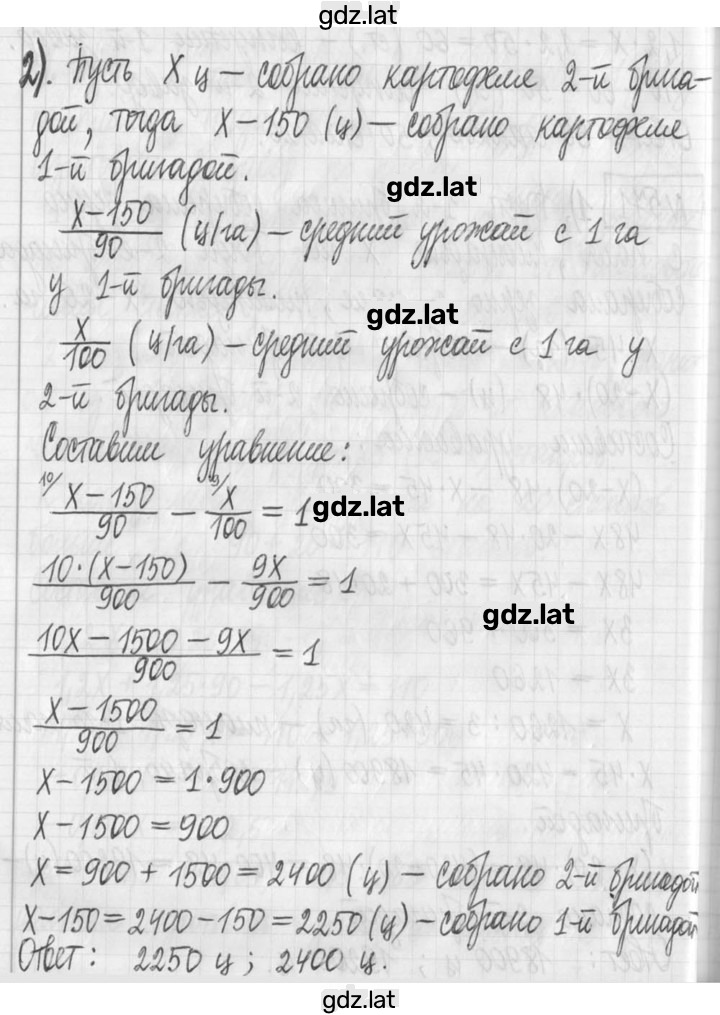 gdz.lat
2). Пусть X ц – собрано картофеля 2-й брига-
дой, тогда X – 150 (ц) – собрано картофеля
1-й бригадой.
gdz.lat
X – 150 / 90 (ц/га) – средний урожай с 1 га
у 1-й бригады.
gdz.lat
X / 100 (ц/га) – средний урожай с 1 га у
2-й бригады.
Составим уравнение:
10/ X – 150 / 90 – 9/ X / 100 = 1
gdz.lat
10·(X – 150) / 900 – 9X / 900 = 1
gdz.lat
10X – 1500 – 9X / 900 = 1
X – 1500 / 900 = 1
X – 1500 = 1·900
X – 1500 = 900
X = 900 + 1500 = 2400 (ц) – собрано 2-й бригадой
X – 150 = 2400 – 150 = 2250 (ц) – собрано 1-й бригадой
Ответ: 2250 ц; 2400 ц.
gdz.lat